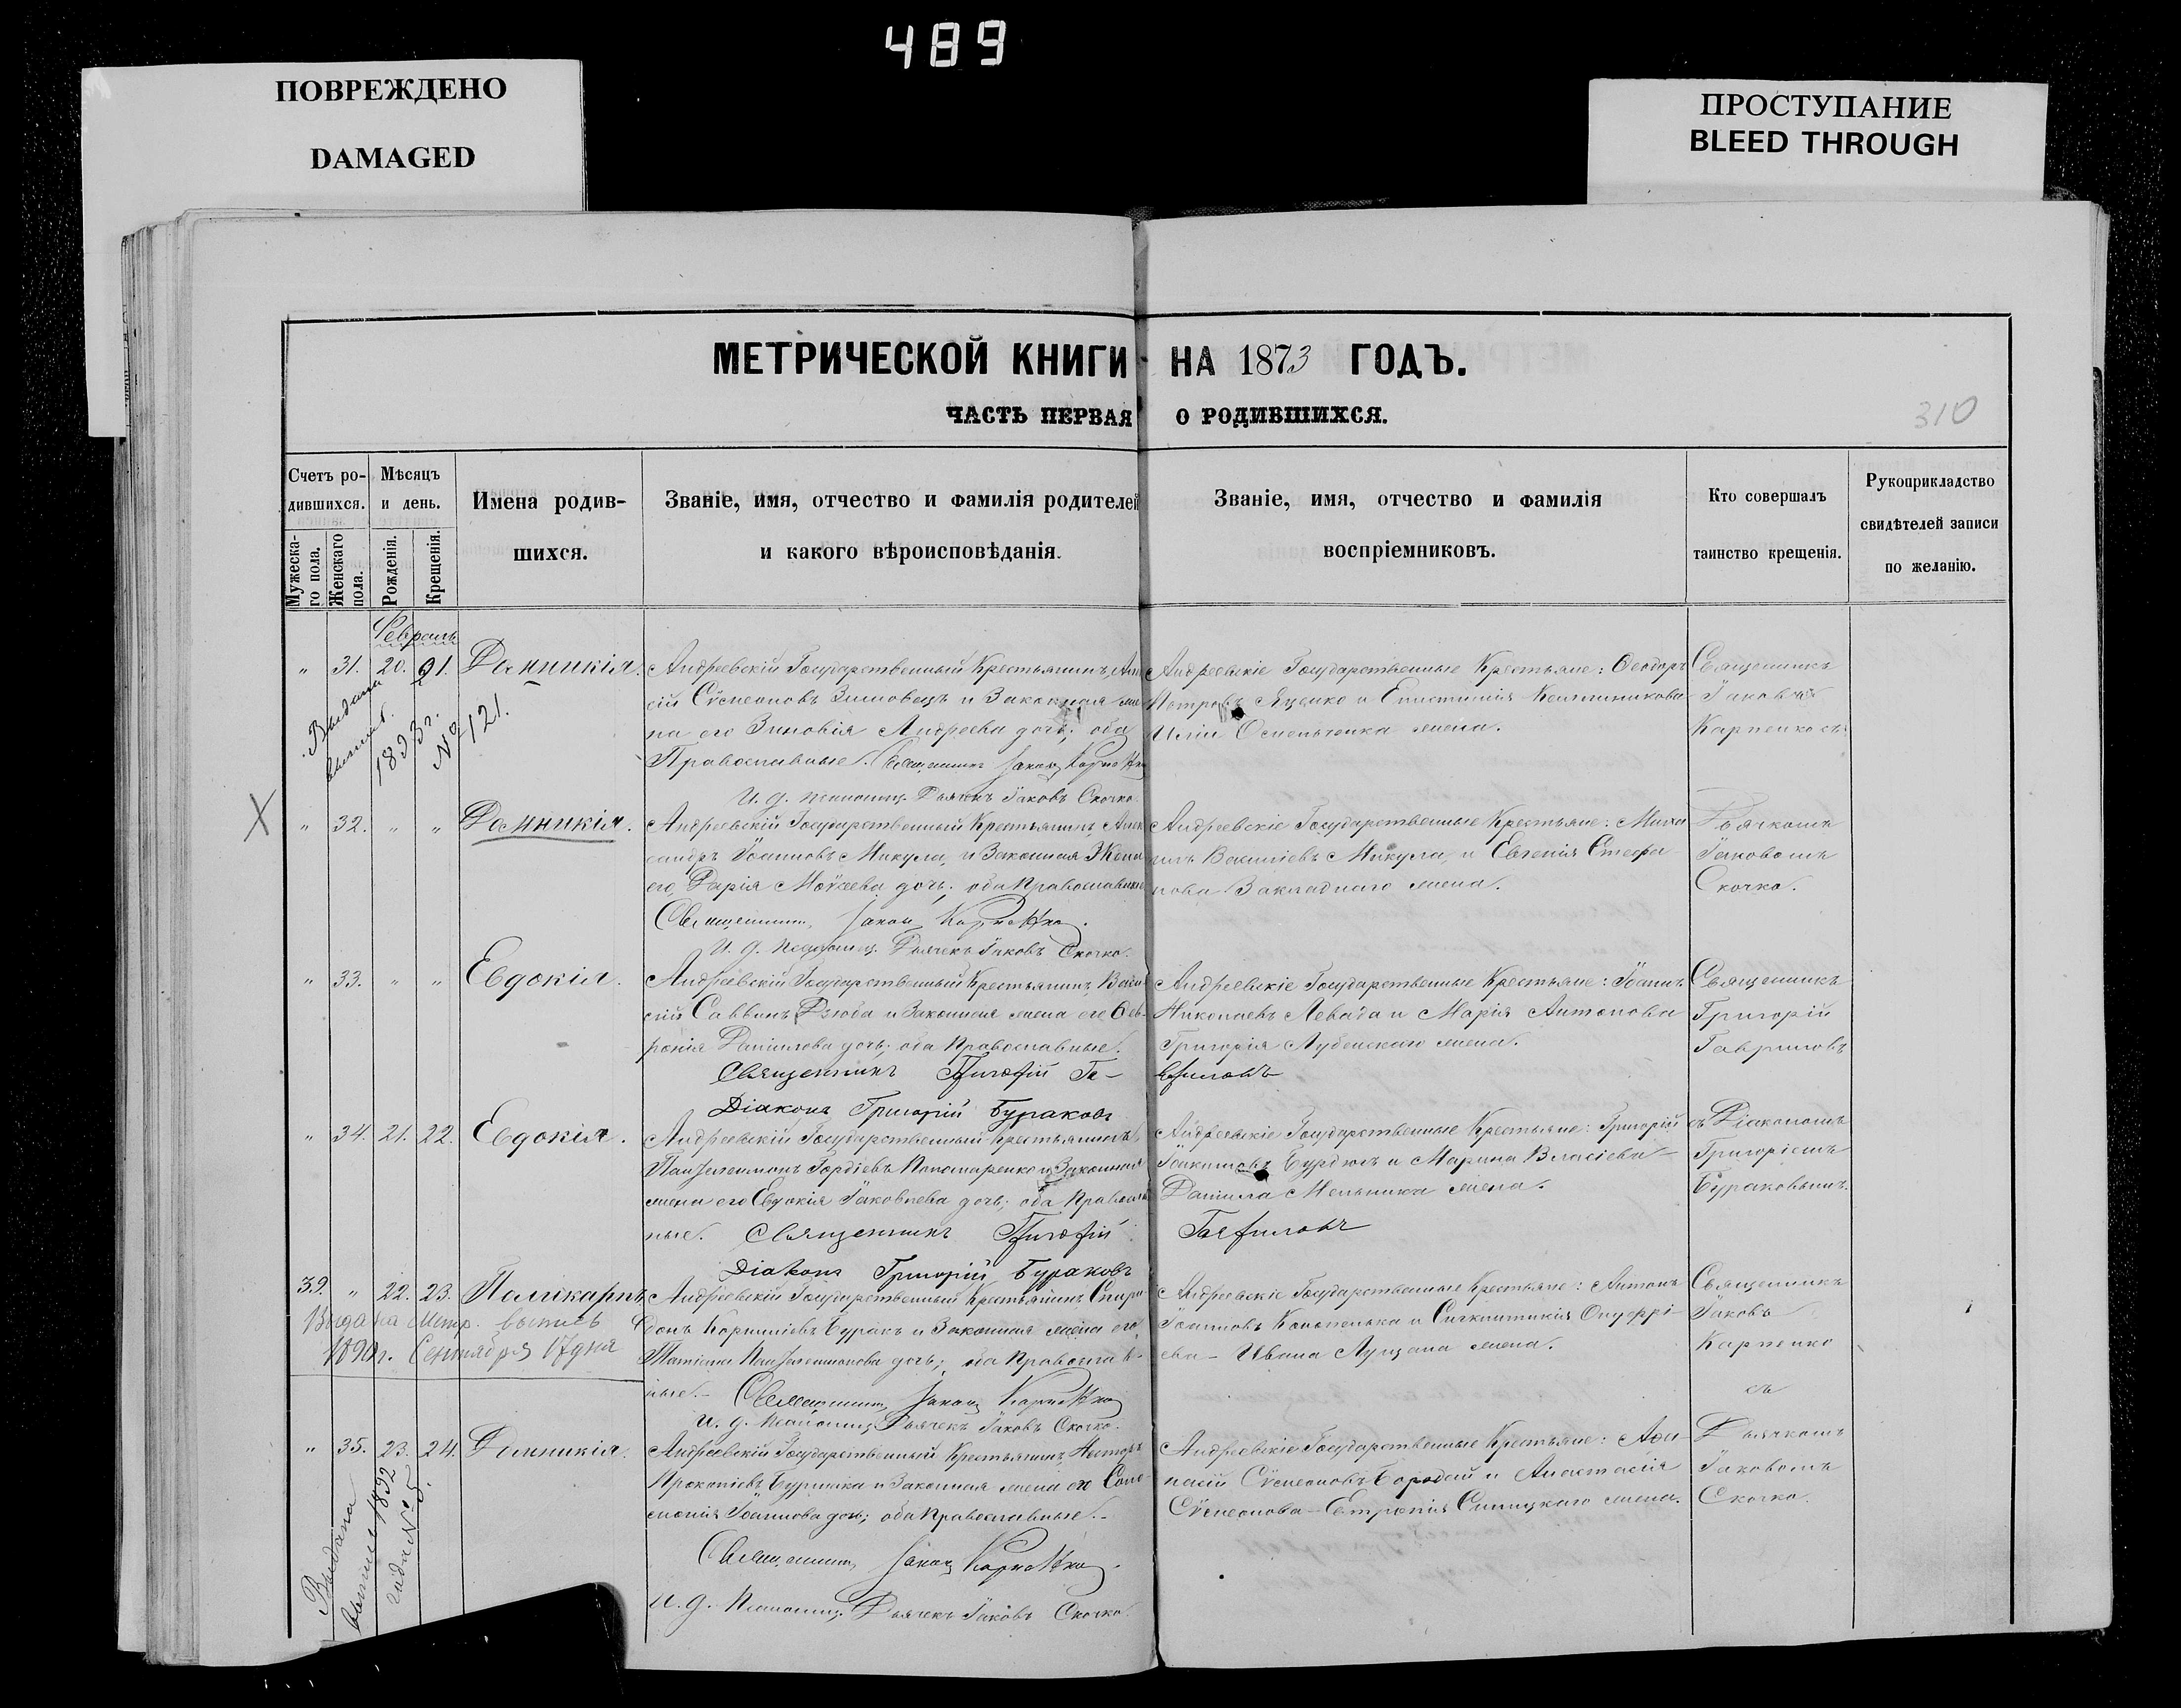 489
ПОВРЕЖДЕНО
DAMAGED
ПРОСТУПАНИЕ
BLEED THROUGH
МЕТРИЧЕСКОЙ КНИГИ НА 1873 ГОДЪ.
ЧАСТЬ ПЕРВАЯ О РОДИВШИХСЯ.
310
Счетъ ро-
дившихся.
Мужеска-
го пола.
Женскаго
пола.
Мѣсяцъ
и день.
Рожденія.
Крещенія.
Имена родив-
шихся.
Званіе, имя, отчество и фамилія родителей
и какого вѣроисповѣданія.
Званіе, имя, отчество и фамилія
воспріемниковъ.
Кто совершалъ
таинство крещенія.
Рукоприкладство
свидѣтелей записи
по желанію.
Февраль
" 31. 20. 21. Домникія.
Выдана
1893 г.
№ 121.
Андреевскій Государственный Крестьянинъ
сій Сѵмеоновъ Зимовецъ и Законная же
на его Зиновія Андреева дочь; оба
Православные. Священникъ Іаковъ Карпенко
И. д. Псаломщ. Дьячекъ Іаковъ Скочко.
Андреевскіе Государственные Крестьяне: Ѳеодоръ
Петровъ Яценко и Епистимія
Иліи жена.
Священникъ
Іаковъ
Карпенко съ
X
" 32. " " Домникія.
Андреевскій Государственный Крестьянинъ Алек
сандръ Іоанновъ Микула, и Законная Жена
его Дарія Моѵсеева дочь; оба Православные
Священникъ Іаковъ Карпенко.
И. д. Псаломщ. Дьячекъ Іаковъ Скочко.
Андреевскіе Государственные Крестьяне: Миха
илъ Василіевъ Микула, и Евгенія Стефа
нова Закладнаго жена.
Дьячкомъ
Іаковомъ
Скочко.
" 33. " " Евдокія.
Андреевскій Государственный Крестьянинъ Васи
лій Саввинъ Дзюба и Законная жена его Ѳев-
ронія Даніилова дочь; оба Православные.
Священникъ Григорій Га-
вриловъ
Діаконъ Григорій Бураковъ
Андреевскіе Государственные Крестьяне: Іоаннъ
Николаевъ Левада и Марія Антонова
Григорія Лубенскаго жена.
Священникъ
Григорій
Гавриловъ
" 34. 21. 22. Евдокія.
Андреевскій Государственный Крестьянинъ
Пантелеимонъ Гордіевъ Пономаренко и Законная
жена его Евдокія Іаковлева дочь; оба Православ
ные. Священникъ Григорій
Гавриловъ
Діаконъ Григорій Бураковъ
Андреевскіе Государственные Крестьяне: Григорій
Іоакимовъ Бурдюгъ и Марина Власіева
Даніила Мельника жена.
съ Діакономъ
Григоріемъ
Бураковымъ.
39. " 22. 23. Поликарпъ.
Выдана Метр. выпись
Сентября 17 дня
Андреевскій Государственный Крестьянинъ Спири
донъ Корниліевъ Буракъ и Законная жена его
Татіана Пантелеимонова дочь; оба Православ-
ные. Священникъ Іаковъ Карпенко
И. д. Псаломщ. Дьячекъ Іаковъ Скочко.
Андреевскіе Государственные Крестьяне: Антонъ
Іоанновъ Кононенько и Сигклитикія Онуфрі-
ева - Ивана Лущана жена.
Священникъ
Іаковъ
Карпенко
съ
" 35. 23. 24. Домникія.
Выдана
выпись 1892
года № 5.
Андреевскій Государственный Крестьянинъ Несторъ
Прокопіевъ Бурлика и Законная жена его Соло
монія Іоаннова дочь; оба Православные.
Священникъ Іаковъ Карпенко.
И. д. Псаломщ. Дьячекъ Іаковъ Скочко.
Андреевскіе Государственные Крестьяне: Афа-
насій Сѵмеоновъ Бородай и Анастасія
Сѵмеонова - Синицкаго жена.
Дьячкомъ
Іаковомъ
Скочко.